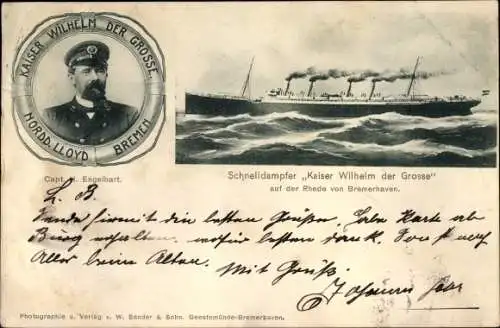 KAISER WILHELM DER GROSSE.
NORDD. LLOYD BREMEN
Capt. H. Engelbart.
Schnelldampfer „Kaiser Wilhelm der Grosse"
auf der Rhede von Bremerhaven.
L. B.
Sende hiermit die besten Grüße. Habe Karte ab
erhalten. wofür besten dank. Sonst noch
Alles beim Alten.
Mit Gruß
Johannes
Photographie u. Verlag v. W. Sander & Sohn. Geestemünde-Bremerhaven.